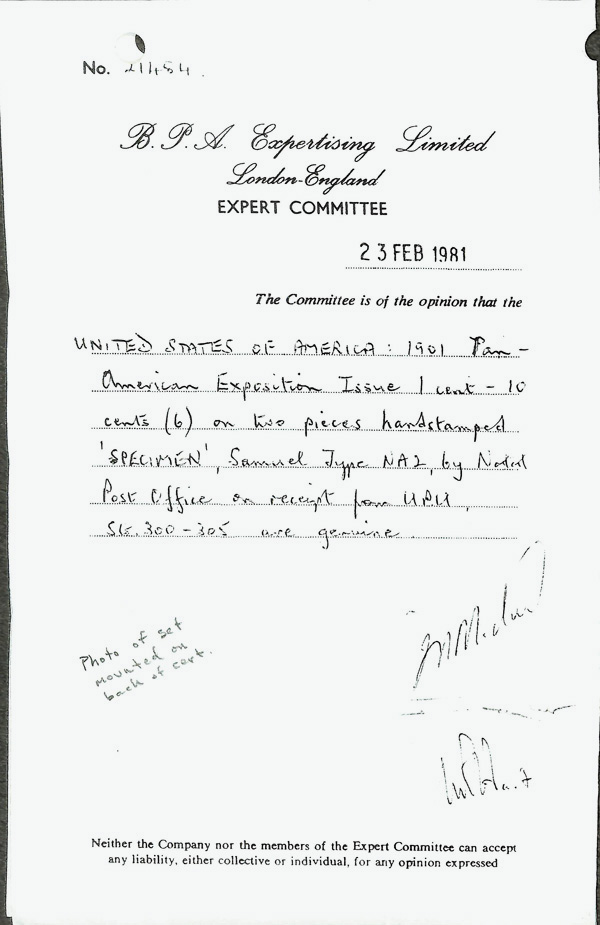 No. 21484
B. P. A. Expertising Limited
London-England
EXPERT COMMITTEE
23 FEB 1981
The Committee is of the opinion that the
UNITED STATES OF AMERICA: 1901 Pan-
American Exposition Issue 1 cent - 10
cents (6) on two pieces handstamped
'SPECIMEN', Samuel Type NA2, by Natal
Post Office on receipt from UPU,
SG. 300-305 are genuine.
Photo of set
mounted on
back of cert.
Neither the Company nor the members of the Expert Committee can accept
any liability, either collective or individual, for any opinion expressed